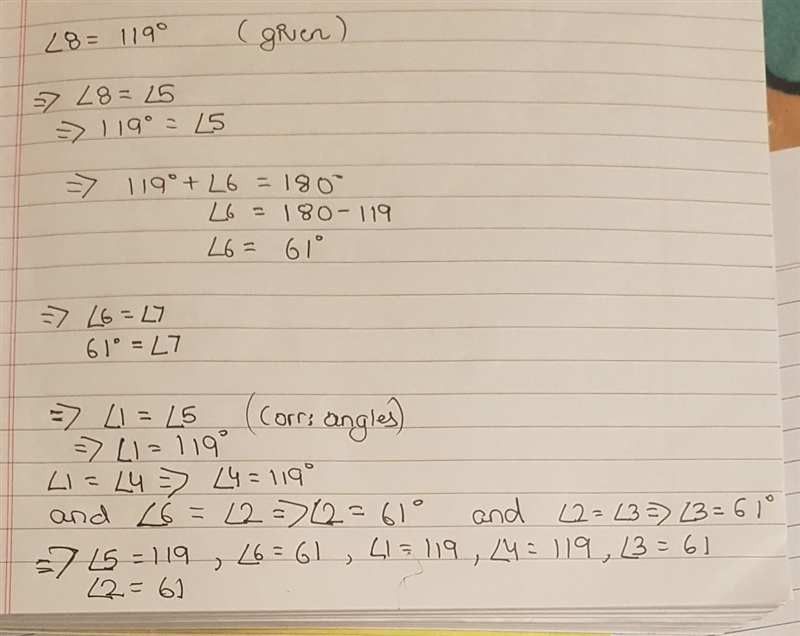 ∠8 = 119° (given)
⇒ ∠8 = ∠5
⇒ 119° = ∠5
⇒ 119° + ∠6 = 180°
∠6 = 180 - 119
∠6 = 61°
⇒ ∠6 = ∠7
61° = ∠7
⇒ ∠1 = ∠5 (Corr: angles)
⇒ ∠1 = 119°
∠1 = ∠4 ⇒ ∠4 = 119°
and ∠6 = ∠2 ⇒ ∠2 = 61° and ∠2 = ∠3 ⇒ ∠3 = 61°
⇒ ∠5 = 119 , ∠6 = 61 , ∠1 = 119 , ∠4 = 119 , ∠3 = 61
∠2 = 61